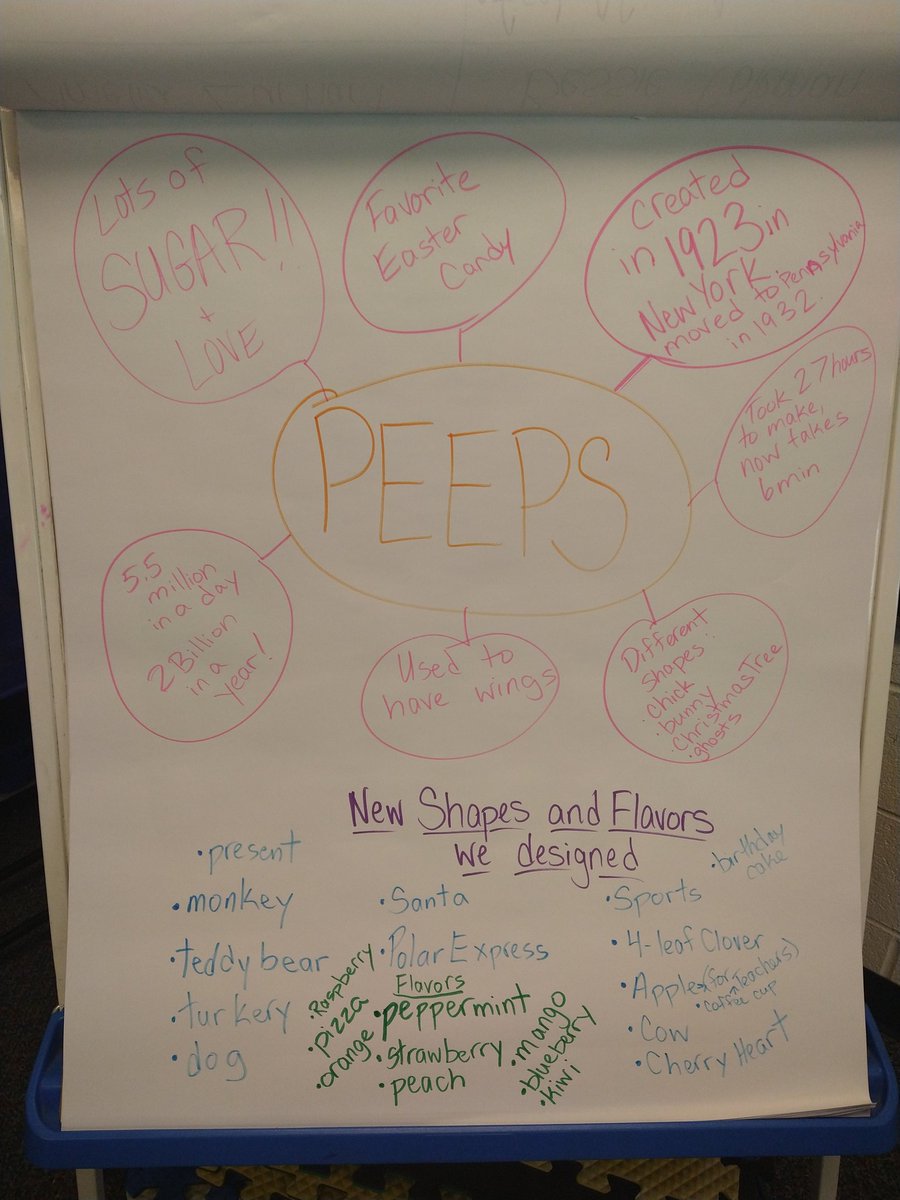 Lots of
SUGAR!!
+
LOVE
Favorite
Easter
Candy
Created
in 1923 in
New York.
moved to Pennsylvania
in 1932.
PEEPS
Took 27 hours
to make,
now takes
6 min
5.5
million
in a day
2 Billion
in a
year!
Used to
have wings
Different
shapes:
• chick
• bunny
• Christmas Tree
• ghosts
New Shapes and Flavors
we designed
• present
• monkey
teddy bear
• turkery
• dog
• Santa
• Polar Express
• birthday
cake
• Sports
• 4-leaf Clover
• Apple (for Teachers)
• coffee cup
• Cow
• Cherry Heart
Flavors
• Raspberry
• pizza
• orange
• peppermint
• strawberry
• peach
• mango
• blueberry
• kiwi